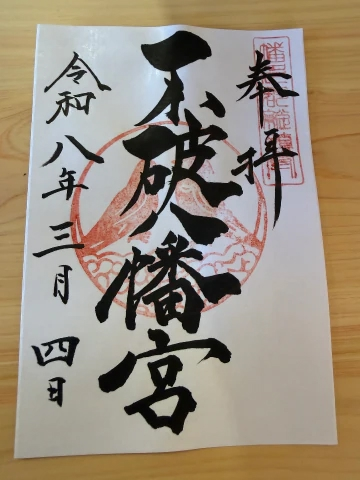 奉拝
不破八幡宮
令和八年三月四日